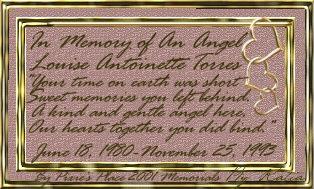 In Memory of An Angel
Louise Antoinette Torres
"Your time on earth was short
Sweet memories you left behind.
A kind and gentle angel here,
Our hearts together you did bind."
June 18, 1980-November 25, 1993
By Pixie's Place 2001 Memorials By Katia